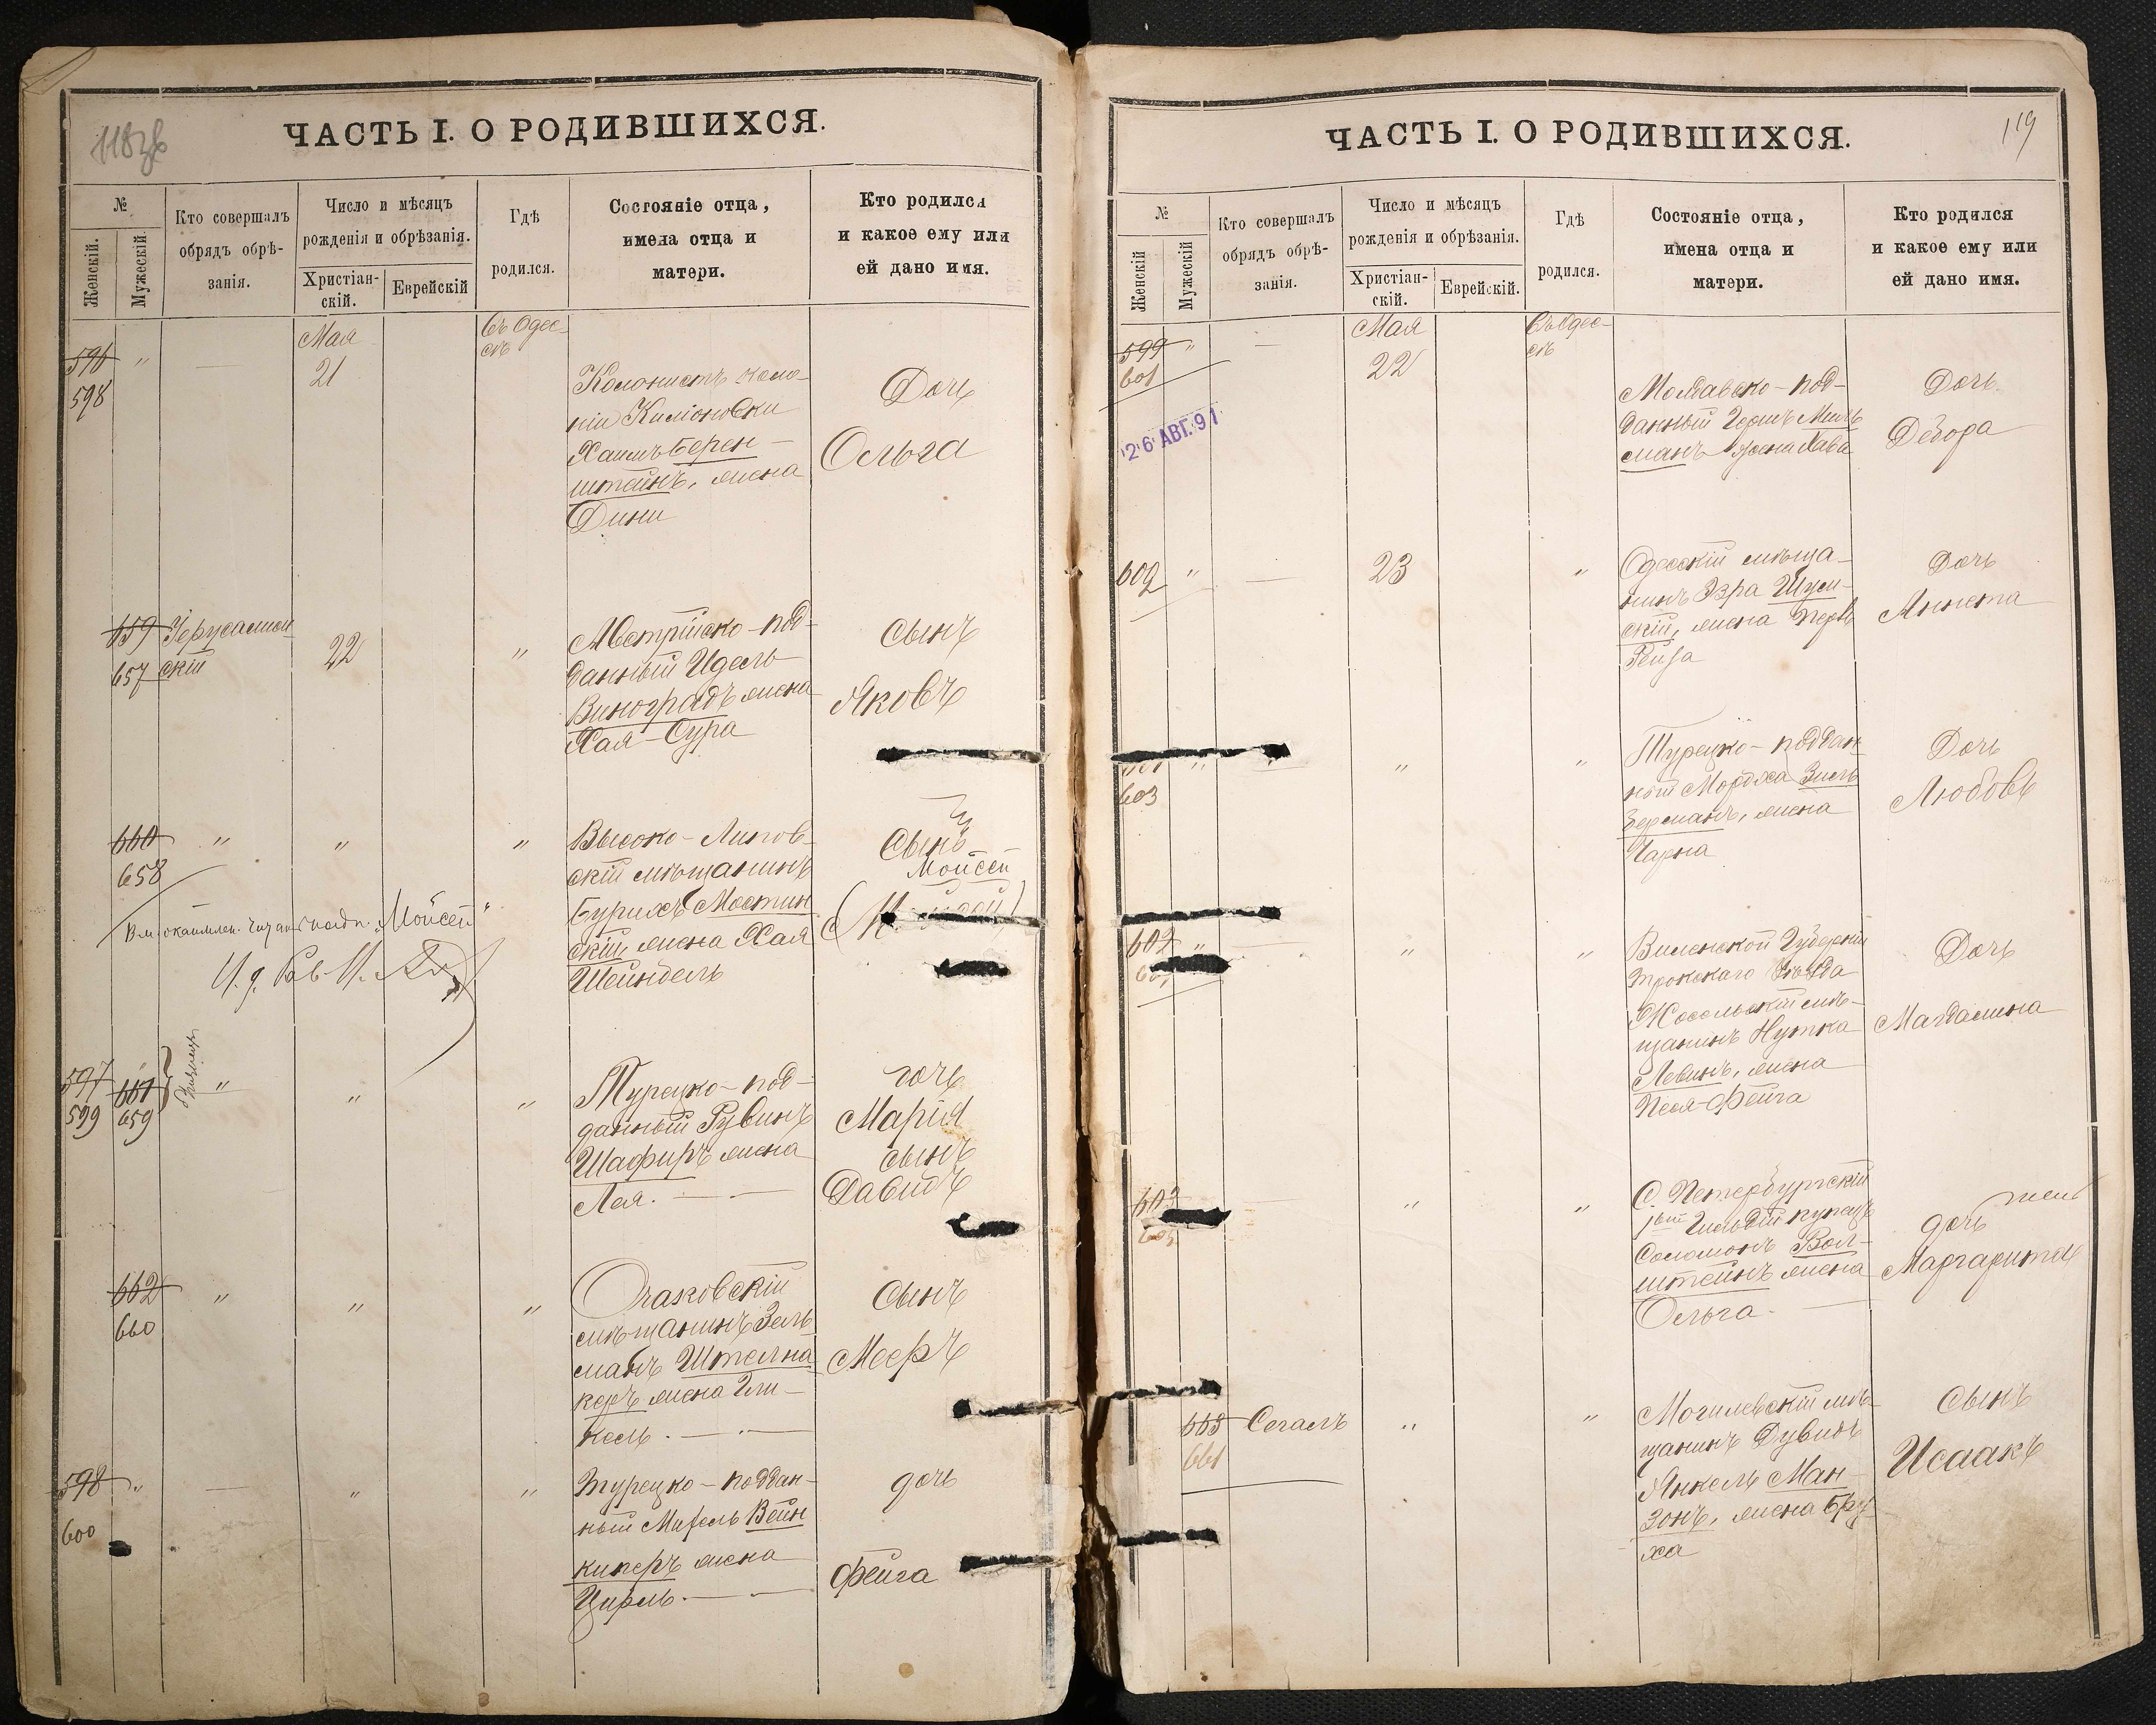 118 об
ЧАСТЬ I. О РОДИВШИХСЯ.
№
Женскій.
Мужескій
Кто совершалъ
обрядъ обрѣ-
занія.
Число и мѣсяцъ
рожденія и обрѣзанія.
Христіан-
скій.
Еврейскій
Гдѣ
родился.
Состояніе отца,
имена отца и
матери.
Кто родился
и какое ему или
ей дано имя.
596
598
"
—
Мая
21
Въ Одес-
сѣ
Колонистъ коло-
ніи
Хаимъ Берен-
штейнъ, жена
Дини
Дочь
Ольга
659
657
Іерусалим
скій
22
"
Австрійско-под-
данный Идель
Виноградъ жена
Хая-Сура
Сынъ
Яковъ
660
658
"
"
"
Высоко-Литов-
скій мѣщанинъ
Бурихъ Мостин
скій, жена Хая
Шейндель
Сынъ
Мойсей
Мойсей"
И. д. Рав.
597
599
661
659
близнецы
"
"
"
Турецко-под-
данный Рувинъ
Шафиръ жена
Лея. — —
дочь
Марія
сынъ
Давидъ
662
660
"
"
"
Очаковскій
мѣщанинъ Зель
манъ Штелма
керъ жена Гли-
кель. — —
Сынъ
Мееръ
598
600
"
—
"
"
Турецко-поддан-
ный Михель Вейн
киперъ жена
Цирль. — —
дочь
Фейга
119
ЧАСТЬ I. О РОДИВШИХСЯ.
№
Женскій
Мужескій
Кто совершалъ
обрядъ обрѣ-
занія.
Число и мѣсяцъ
рожденія и обрѣзанія.
Христіан-
скій.
Еврейскій.
Гдѣ
родился.
Состояніе отца,
имена отца и
матери.
Кто родился
и какое ему или
ей дано имя.
599
601
"
—
Мая
22
Въ Одес-
сѣ
26 АВГ. 91
Молдавско-под-
данный Гершъ Миль
манъ жена Хава
Дочь
Дебора
602
"
—
23
"
Одесскій мѣща-
нинъ Эзра Шум-
скій, жена Перль
Рейза
Дочь
Аннета
603
"
"
"
Турецко-поддан
ный Мордха Зиль
берманъ, жена
Чарна
Дочь
Любовь
602
"
—
"
"
Виленской Губерніи
Трокскаго Уѣзда
мѣ-
щанинъ Нутка
Левинъ, жена
Песя-Фейга
Дочь
Магдалина
603
605
"
"
С. Петербургскій
1ой Гильдіи купецъ
Соломонъ Вол-
штейнъ жена
Ольга. —
дочь
Маргарита
663
661
Сегалъ
"
"
Могилевскій мѣ-
щанинъ Дувидъ
Янкель Ман-
зонъ, жена Бру-
ха
Сынъ
Исаакъ